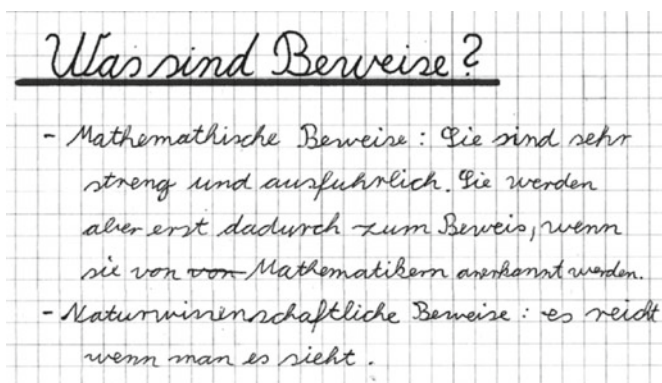 Was sind Beweise?
- Mathemathische Beweise: Sie sind sehr
streng und ausfuhrlich. Sie werden
aber erst dadurch zum Beweis, wenn
sie von von Mathematikern anerkannt werden.
- Naturwissenschaftliche Beweise: es reicht
wenn man es sieht.